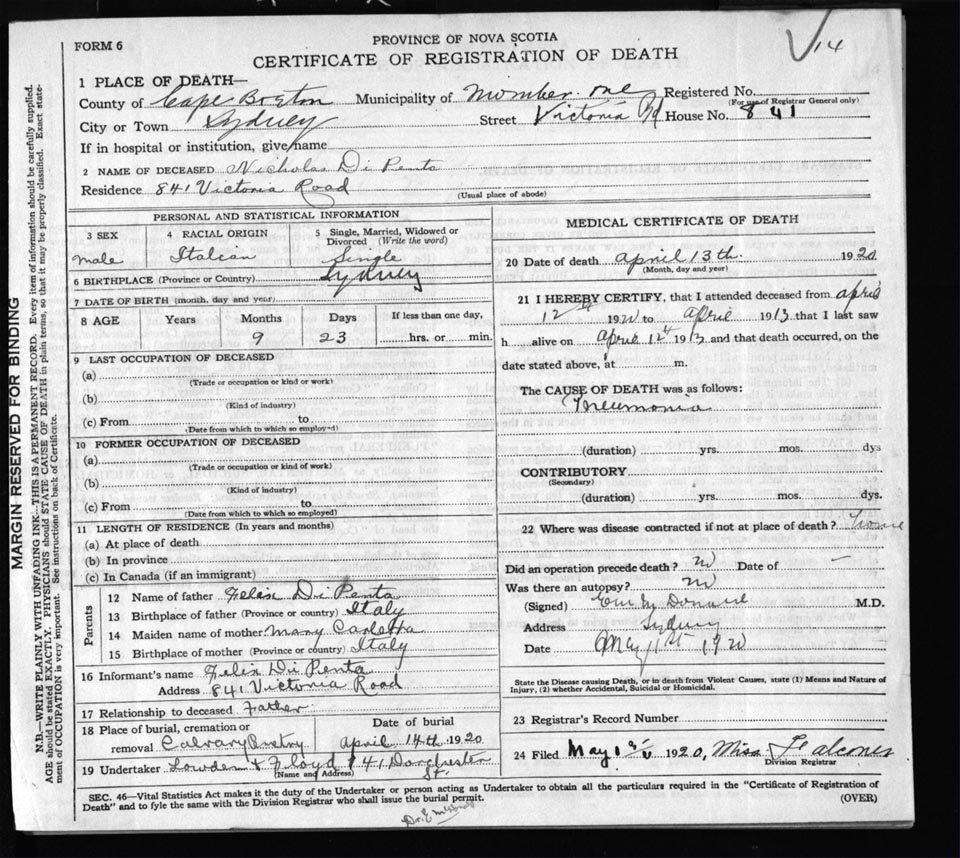 14
FORM 6
PROVINCE OF NOVA SCOTIA
CERTIFICATE OF REGISTRATION OF DEATH
1 PLACE OF DEATH—
County of Cape Breton Municipality of Number one Registered No.
(For use of Registrar General only)
City or Town Sydney Street Victoria Rd House No. 841
If in hospital or institution, give name
2 NAME OF DECEASED Nicholas Di Penta
Residence 841 Victoria Road
(Usual place of abode)
PERSONAL AND STATISTICAL INFORMATION
3 SEX
male
4 RACIAL ORIGIN
Italian
5 Single, Married, Widowed or Divorced (Write the word)
Single
6 BIRTHPLACE (Province or Country) Sydney
7 DATE OF BIRTH (month, day and year)
8 AGE Years Months Days If less than one day,
9 23 hrs. or min.
9 LAST OCCUPATION OF DECEASED
(a)
(Trade or occupation or kind or work)
(b)
(Kind of industry)
(c) From to
(Date from which to which so employed)
10 FORMER OCCUPATION OF DECEASED
(a)
(Trade or occupation or kind of work)
(b)
(Kind of industry)
(c) From to
(Date from which to which so employed)
11 LENGTH OF RESIDENCE (In years and months)
(a) At place of death
(b) In province
(c) In Canada (if an immigrant)
Parents
12 Name of father Felix Di Penta
13 Birthplace of father (Province or country) Italy
14 Maiden name of mother Mary Carletta
15 Birthplace of mother (Province or country) Italy
16 Informant's name Felix Di Penta
Address 841 Victoria Road
17 Relationship to deceased Father
18 Place of burial, cremation or removal Calvary
Date of burial
April 14th 1920
19 Undertaker Lowden & Floyd 141 Dorchester St.
(Name and Address)
MEDICAL CERTIFICATE OF DEATH
20 Date of death April 13th 1920
(Month, day and year)
21 I HEREBY CERTIFY, that I attended deceased from April
12th 1920 to April 1913 that I last saw
h alive on April 12th 1913 and that death occurred, on the
date stated above, at m.
The CAUSE OF DEATH was as follows:
Pneumonia
(duration) yrs. mos. dys
CONTRIBUTORY
(Secondary)
(duration) yrs. mos. dys.
22 Where was disease contracted if not at place of death? home
Did an operation precede death? no Date of —
Was there an autopsy? no
(Signed) M.D.
Address Sydney
Date May 1st 1920
State the Disease causing Death, or in death from Violent Causes, state (1) Means and Nature of
Injury, (2) whether Accidental, Suicidal or Homicidal.
23 Registrar's Record Number
24 Filed May 1st 1920, Miss Falconer
Division Registrar
SEC. 46—Vital Statistics Act makes it the duty of the Undertaker or person acting as Undertaker to obtain all the particulars required in the "Certificate of Registration of
Death" and to fyle the same with the Division Registrar who shall issue the burial permit.
(OVER)
MARGIN RESERVED FOR BINDING
N.B.—WRITE PLAINLY WITH UNFADING INK—THIS IS A PERMANENT RECORD. Every item of information should be carefully supplied.
AGE should be stated EXACTLY. PHYSICIANS should STATE CAUSE OF DEATH in plain terms, so that it may be properly classified. Exact state-
ment of OCCUPATION is very important. See instructions on back of Certificate.